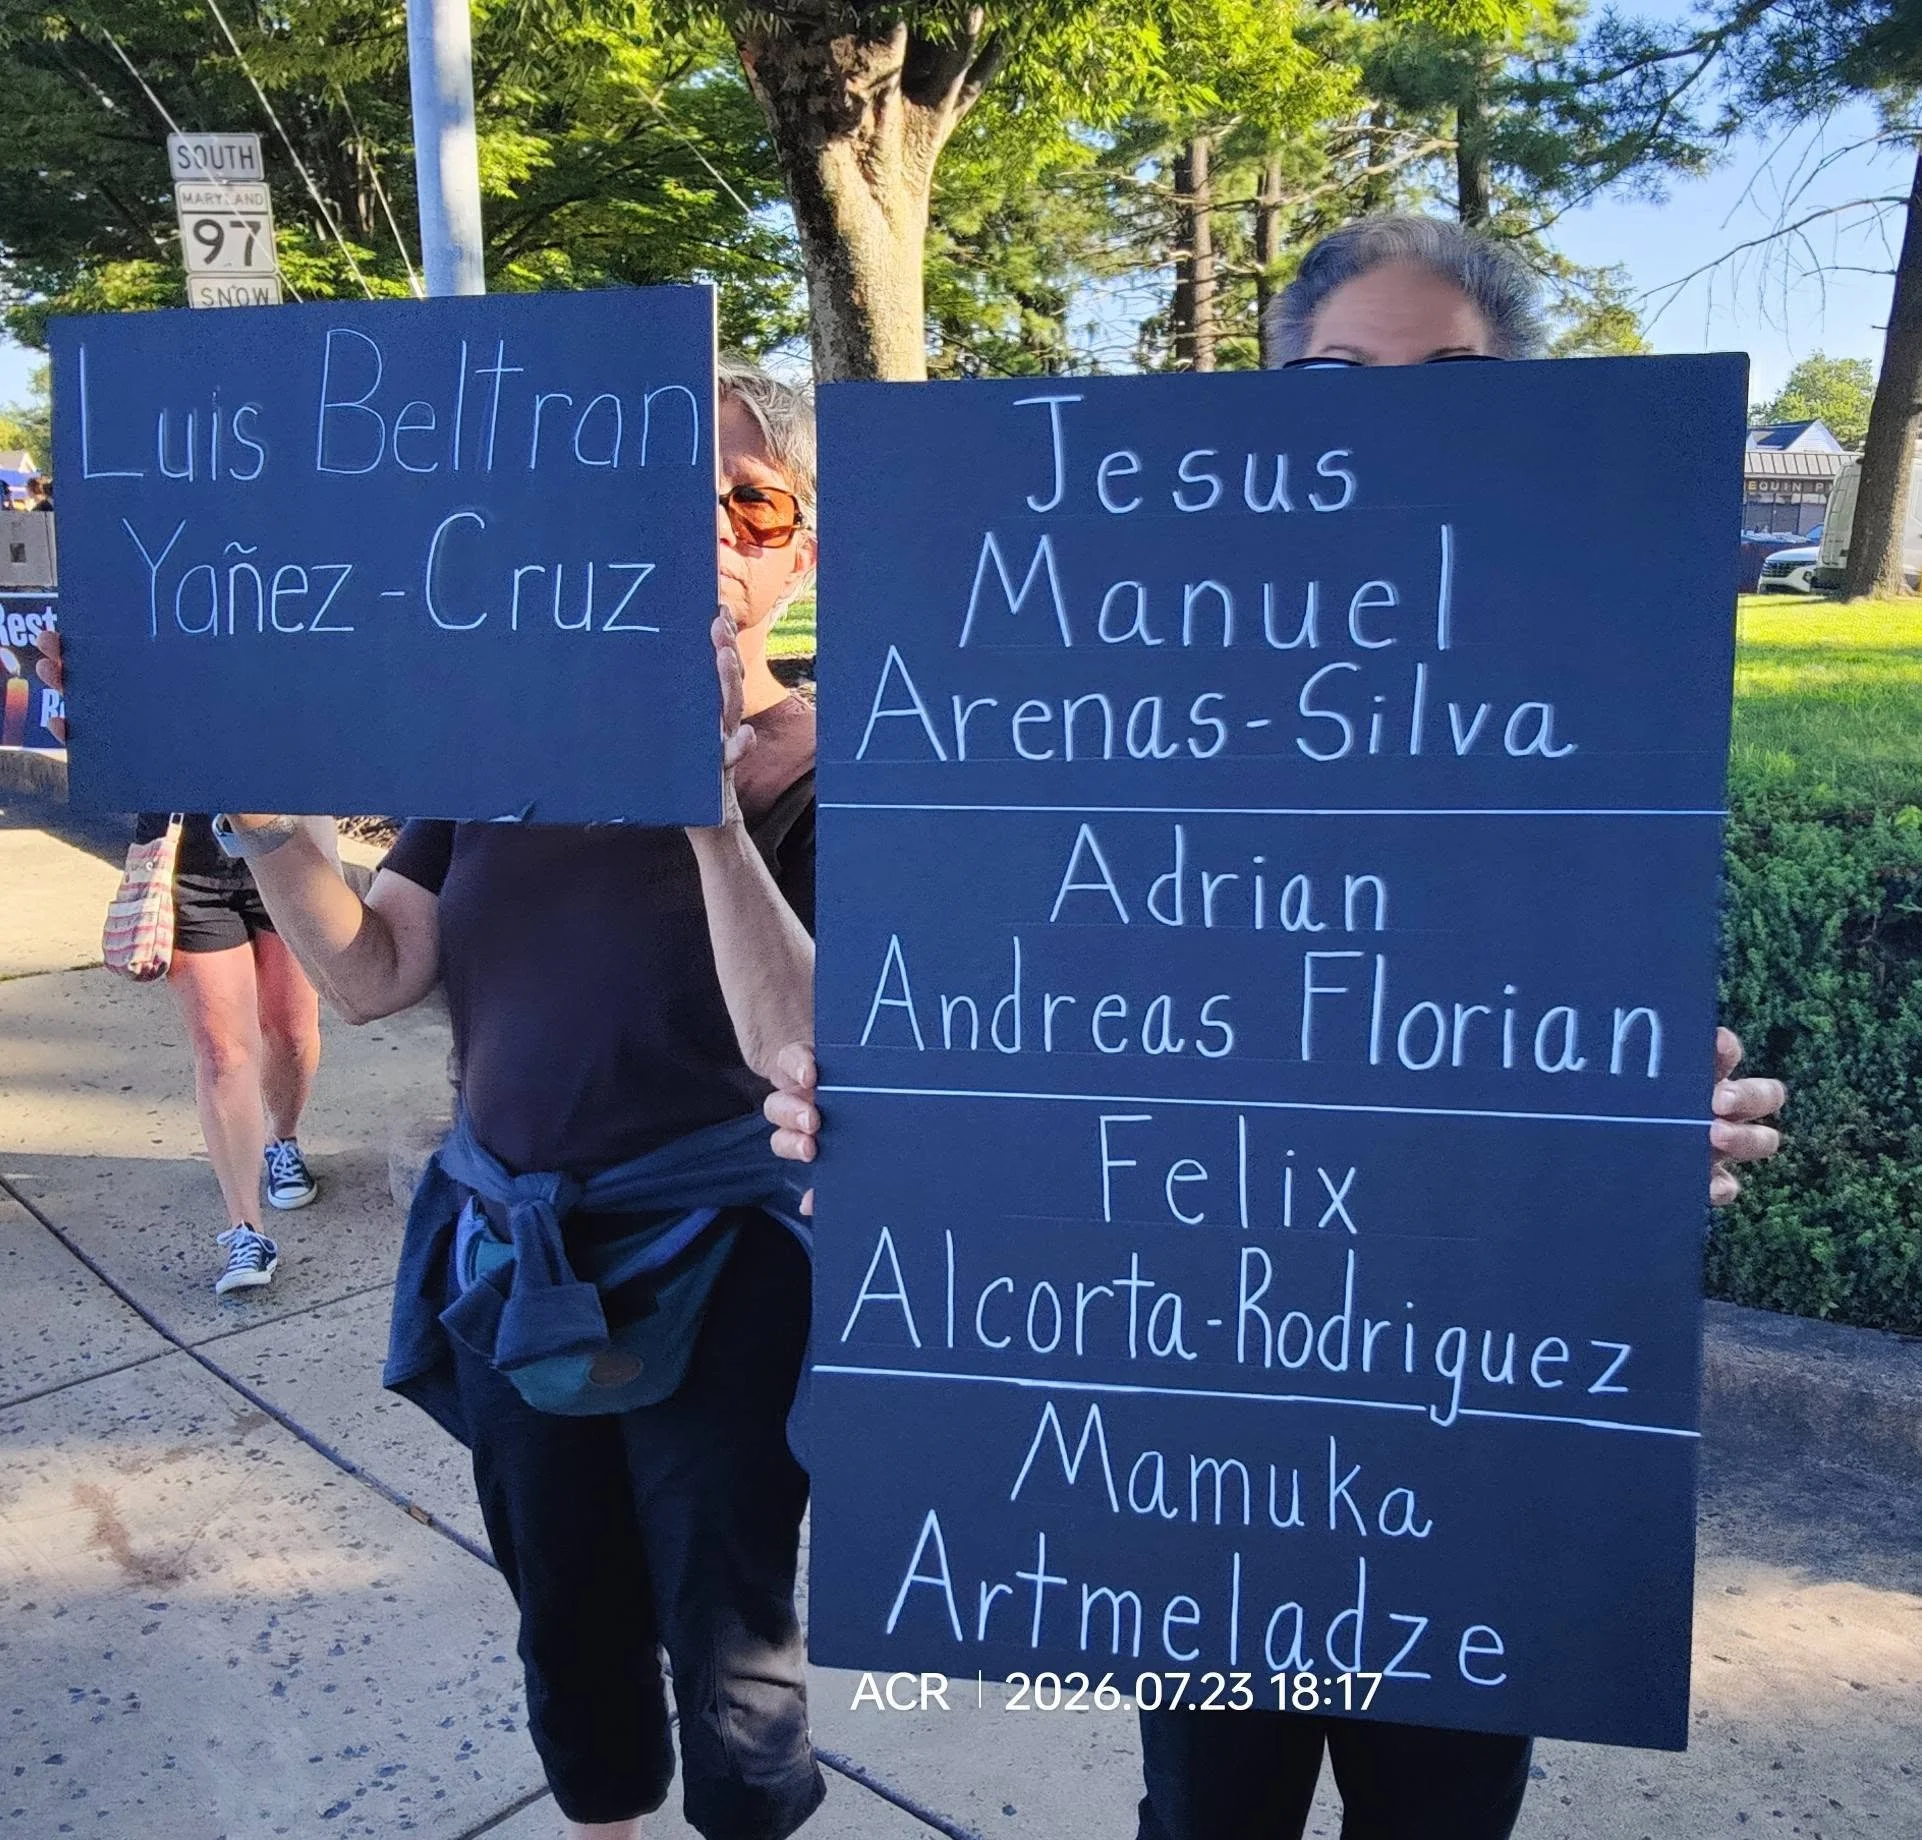 SOUTH
MARYLAND
97
SNOW
Luis Beltran
Yañez-Cruz
Jesus
Manuel
Arenas-Silva
Adrian
Andreas Florian
Felix
Alcorta-Rodriguez
Mamuka
Artmeladze
ACR | 2026.07.23 18:17